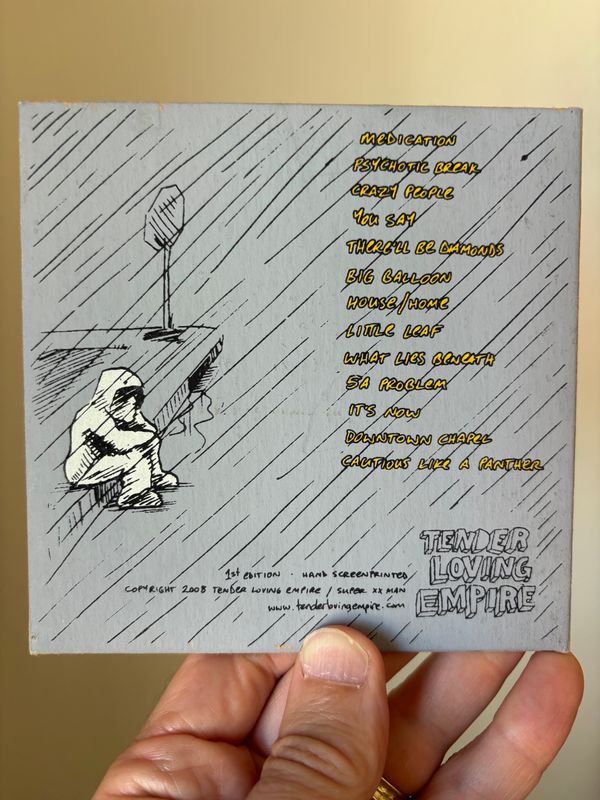 MEDICATION
PSYCHOTIC BREAK
CRAZY PEOPLE
YOU SAY
THERE'LL BE DIAMONDS
BIG BALLOON
HOUSE/HOME
LITTLE LEAF
WHAT LIES BENEATH
5A PROBLEM
IT'S NOW
DOWNTOWN CHAPEL
CAUTIOUS LIKE A PANTHER
TENDER
LOVING
EMPIRE
1st EDITION · HAND SCREENPRINTED
COPYRIGHT 2008 TENDER LOVING EMPIRE / SUPER XX MAN
www.tenderlovingempire.com